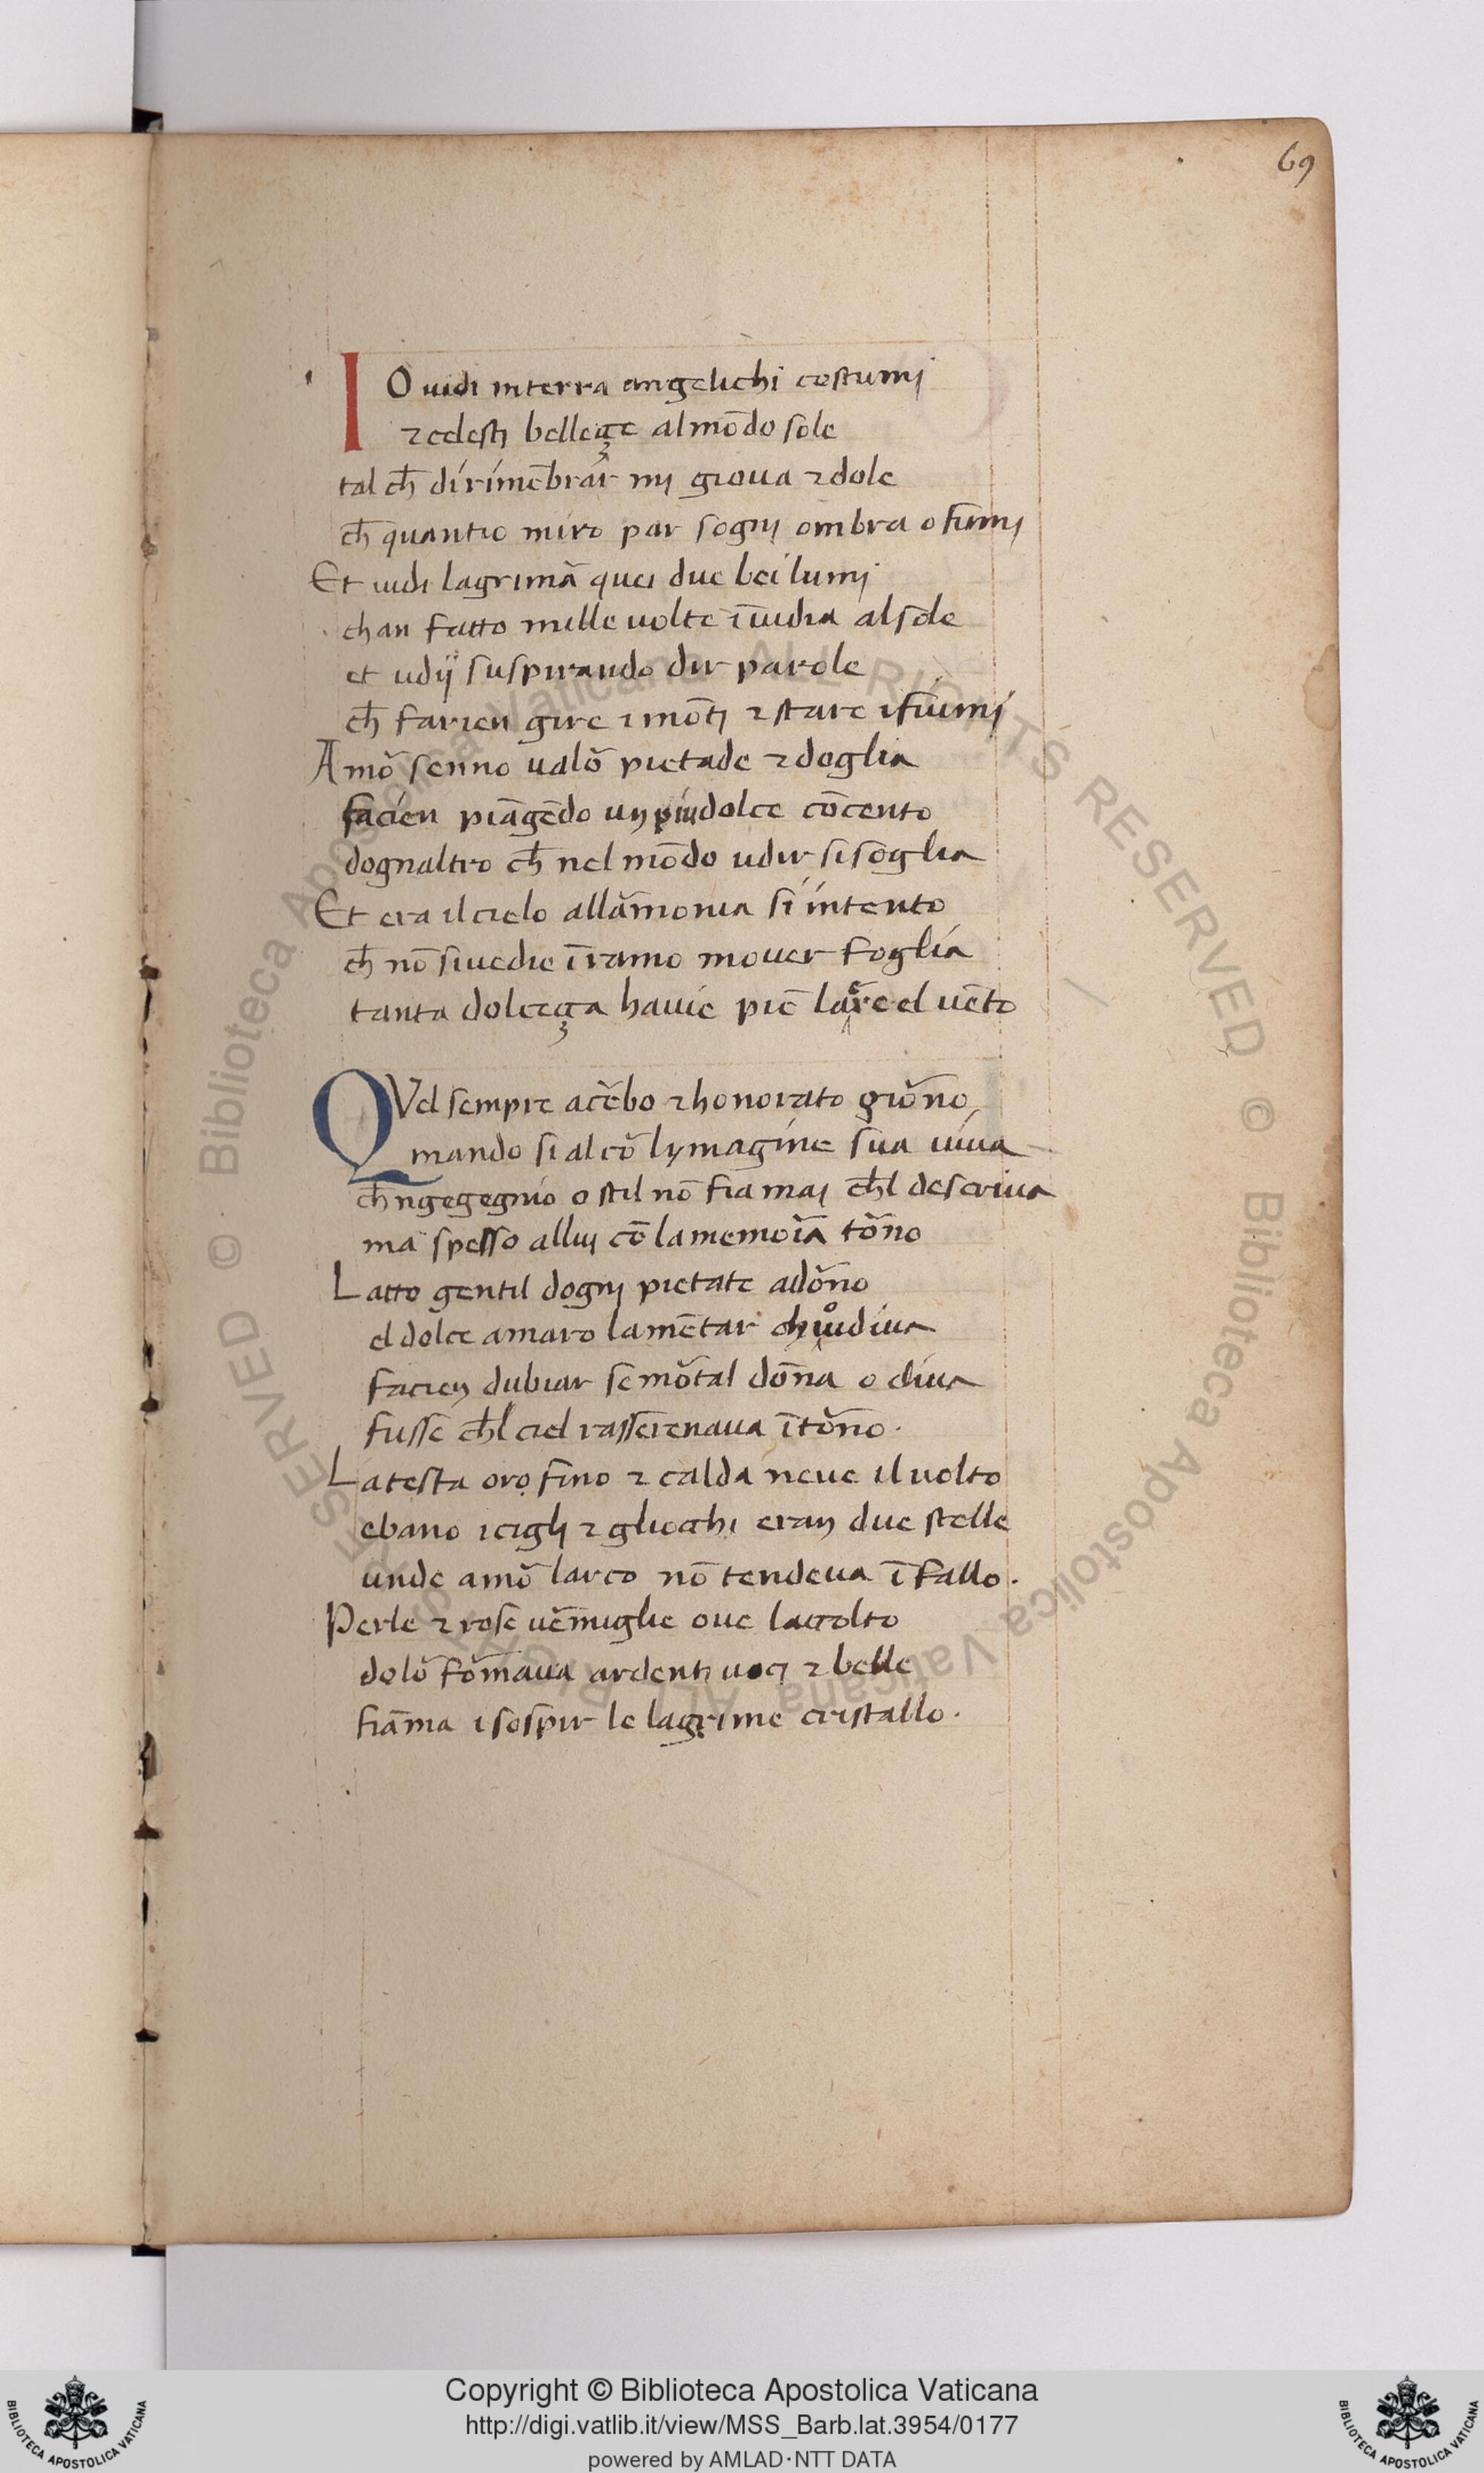 69
IO uidi interra angelichi costumj
⁊celestj belleçe almōdo sole
tal ch̄ dirimēbrar mj gioua ⁊dole
ch̄ quantio miro par sognj ombra o fumj
Et uidi lagrimā quei due bei lumj
chan fatto mille uolte īuidia alsole
et udij suspirando dir parole
ch̄ farien gire i mōtj ⁊ stare ifiumj
Amō senno ualō pietade ⁊doglia
facien piāgēdo un piudolce cōcento
dognaltro ch̄ nel mōdo udir sisoglia
Et era ilcielo allāmonia si intento
ch̄ nō siuedie īramo mouer foglia
tanta dolceça hauie piē larēel uēto
QVel sempre acēbo ⁊honorato giōno
mando si al cō lymagine sua uiua
ch̄ngegegnio o stil nō fia maj ch̄l descriua
ma spesso alluj cō lamemoīa tōno
Latto gentil dognj pietate adōno
el dolce amaro lamētar chiᵒudiua
facien dubiar se mōtal dōna o diua
fusse ch̄l ciel rasserenaua ītōno.
Latesta oro fino ⁊ calda neue iluolto
ebano icigli ⁊ gliocchi eran due stelle
unde amō larco nō tendeua ī fallo.
Perle ⁊ rose uēmiglie oue laccolto
dolō fōmaua ardentj uocj ⁊ belle
fiāma isospir le lagrime cristallo.
© Biblioteca Apostolica Vaticana ALL RIGHTS RESERVED © Biblioteca Apostolica Vaticana ALL RIGHTS RESERVED
BIBLIOTECA APOSTOLICA VATICANA
Copyright © Biblioteca Apostolica Vaticana
http://digi.vatlib.it/view/MSS_Barb.lat.3954/0177
powered by AMLAD·NTT DATA
BIBLIOTECA APOSTOLICA VATICANA